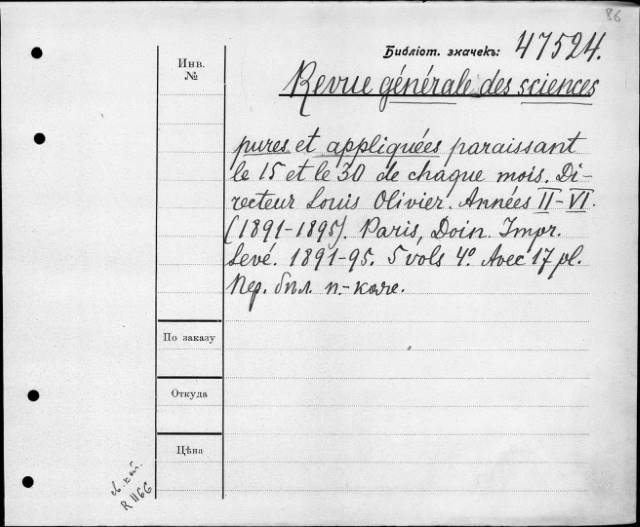 86
Библіот. значекъ: 47524.
Инв.
№
Revue générale des sciences
pures et appliquées paraissant
le 15 et le 30 de chaque mois. Di-
recteur Louis Olivier. Années II-VI.
(1891-1895). Paris, Doin. Impr.
Levé. 1891-95. 5 vols 4º. Avec 17 pl.
Пер. бѣл. п.-кож.
По заказу
Откуда
Цѣна
R 1166